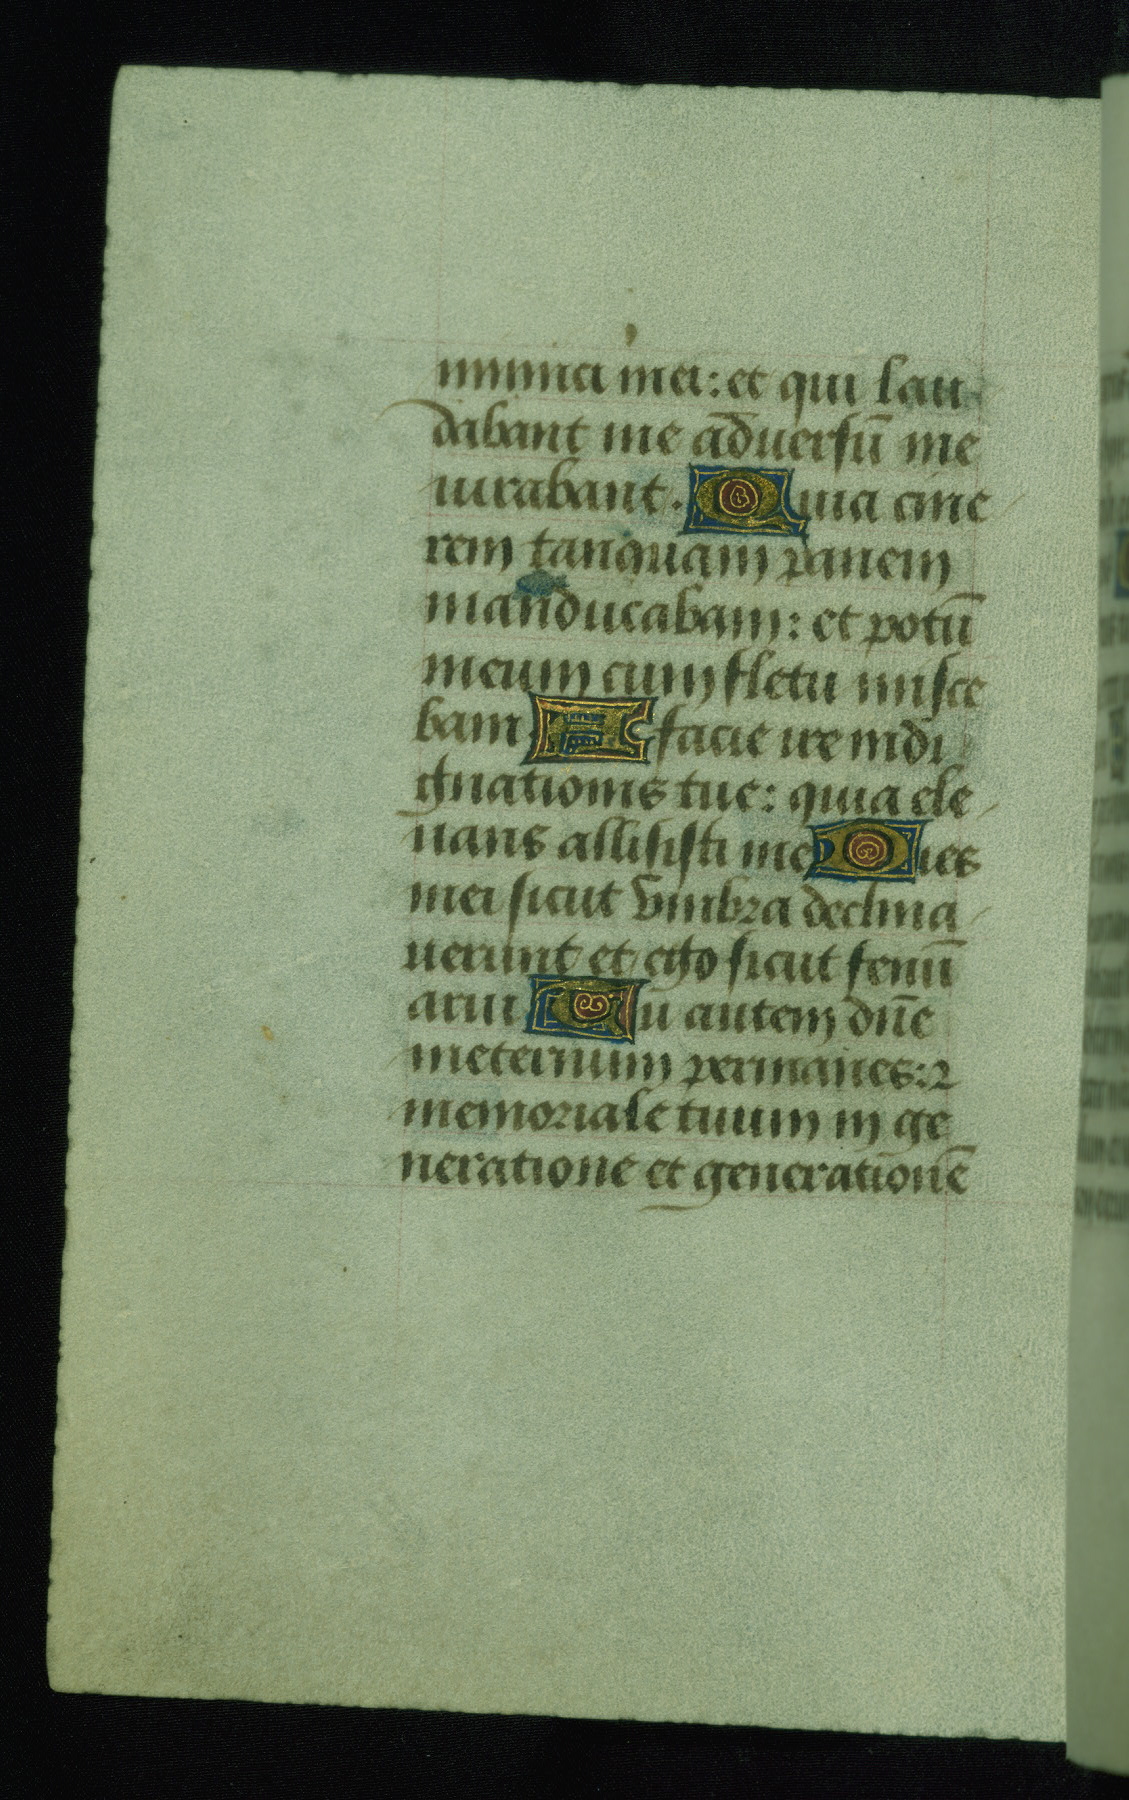 nimici mei: et qui lau
dabant me aduersū me
iurabant. Quia cine
rem tanquam panem
manducabam: et potū
meum cum fletu misce
bam A facie ire indi
gnationis tue: quia ele
uans allisisti me Dies
mei sicut vmbra declina
uerunt et ego sicut fenū
arui Tu autem dñe
ineternum permanes: ꝛ
memoriale tuum in ge
neratione et generationē